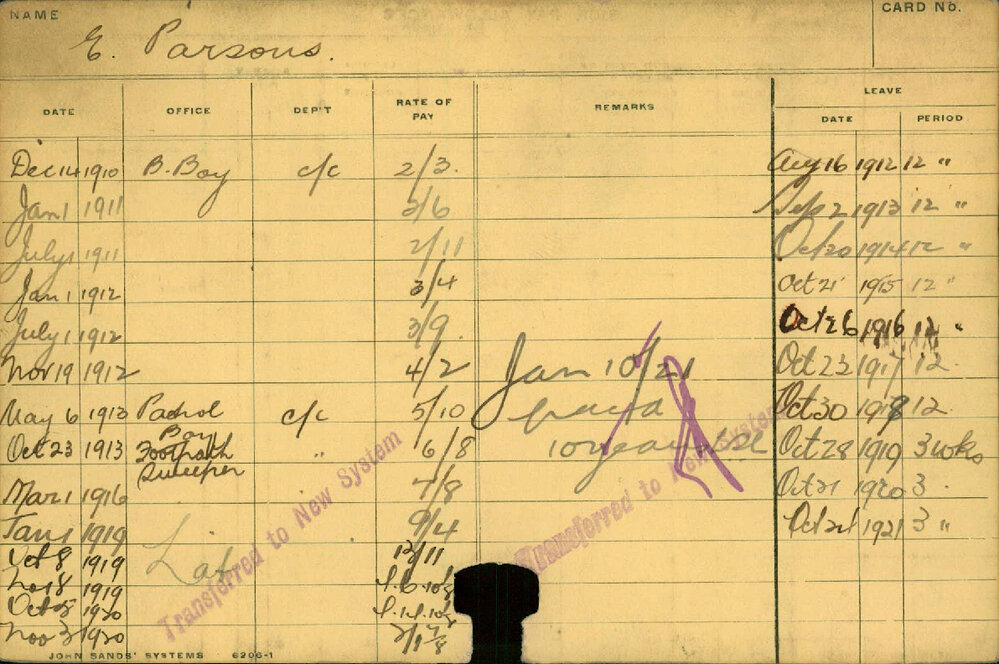 NAME
CARD No.
E. Parsons.
LEAVE
DATE OFFICE DEP'T RATE OF PAY REMARKS DATE PERIOD
Dec 14 1910 B. Boy c/c 2/3. Aug 16 1912 12 "
Jan 1 1911 2/6 Sep 2 1913 12 "
July 1 1911 2/11 Oct 20 1914 12 "
Jan 1 1912 3/4 Oct 21 1915 12 "
July 1 1912 3/9. Oct 26 1916 12 "
Nov 19 1912 4/2 Jan 10/21 Oct 23 1917 12.
May 6 1913 Patrol Boy c/c 5/10 Oct 30 1918 12
Oct 23 1913 Footpath Sweeper " 6/8 10 years Oct 28 1919 3 wks
Mar 1 1916 7/8 Oct 21 1920 3.
Jan 1 1919 9/4 Oct 24 1921 3 "
Oct 8 1919 Lab 12/11
Nov 8 1919
Oct 8 1920
Nov 3 1920
Transferred to New System
Transferred to New System
JOHN SANDS' SYSTEMS 6206-1